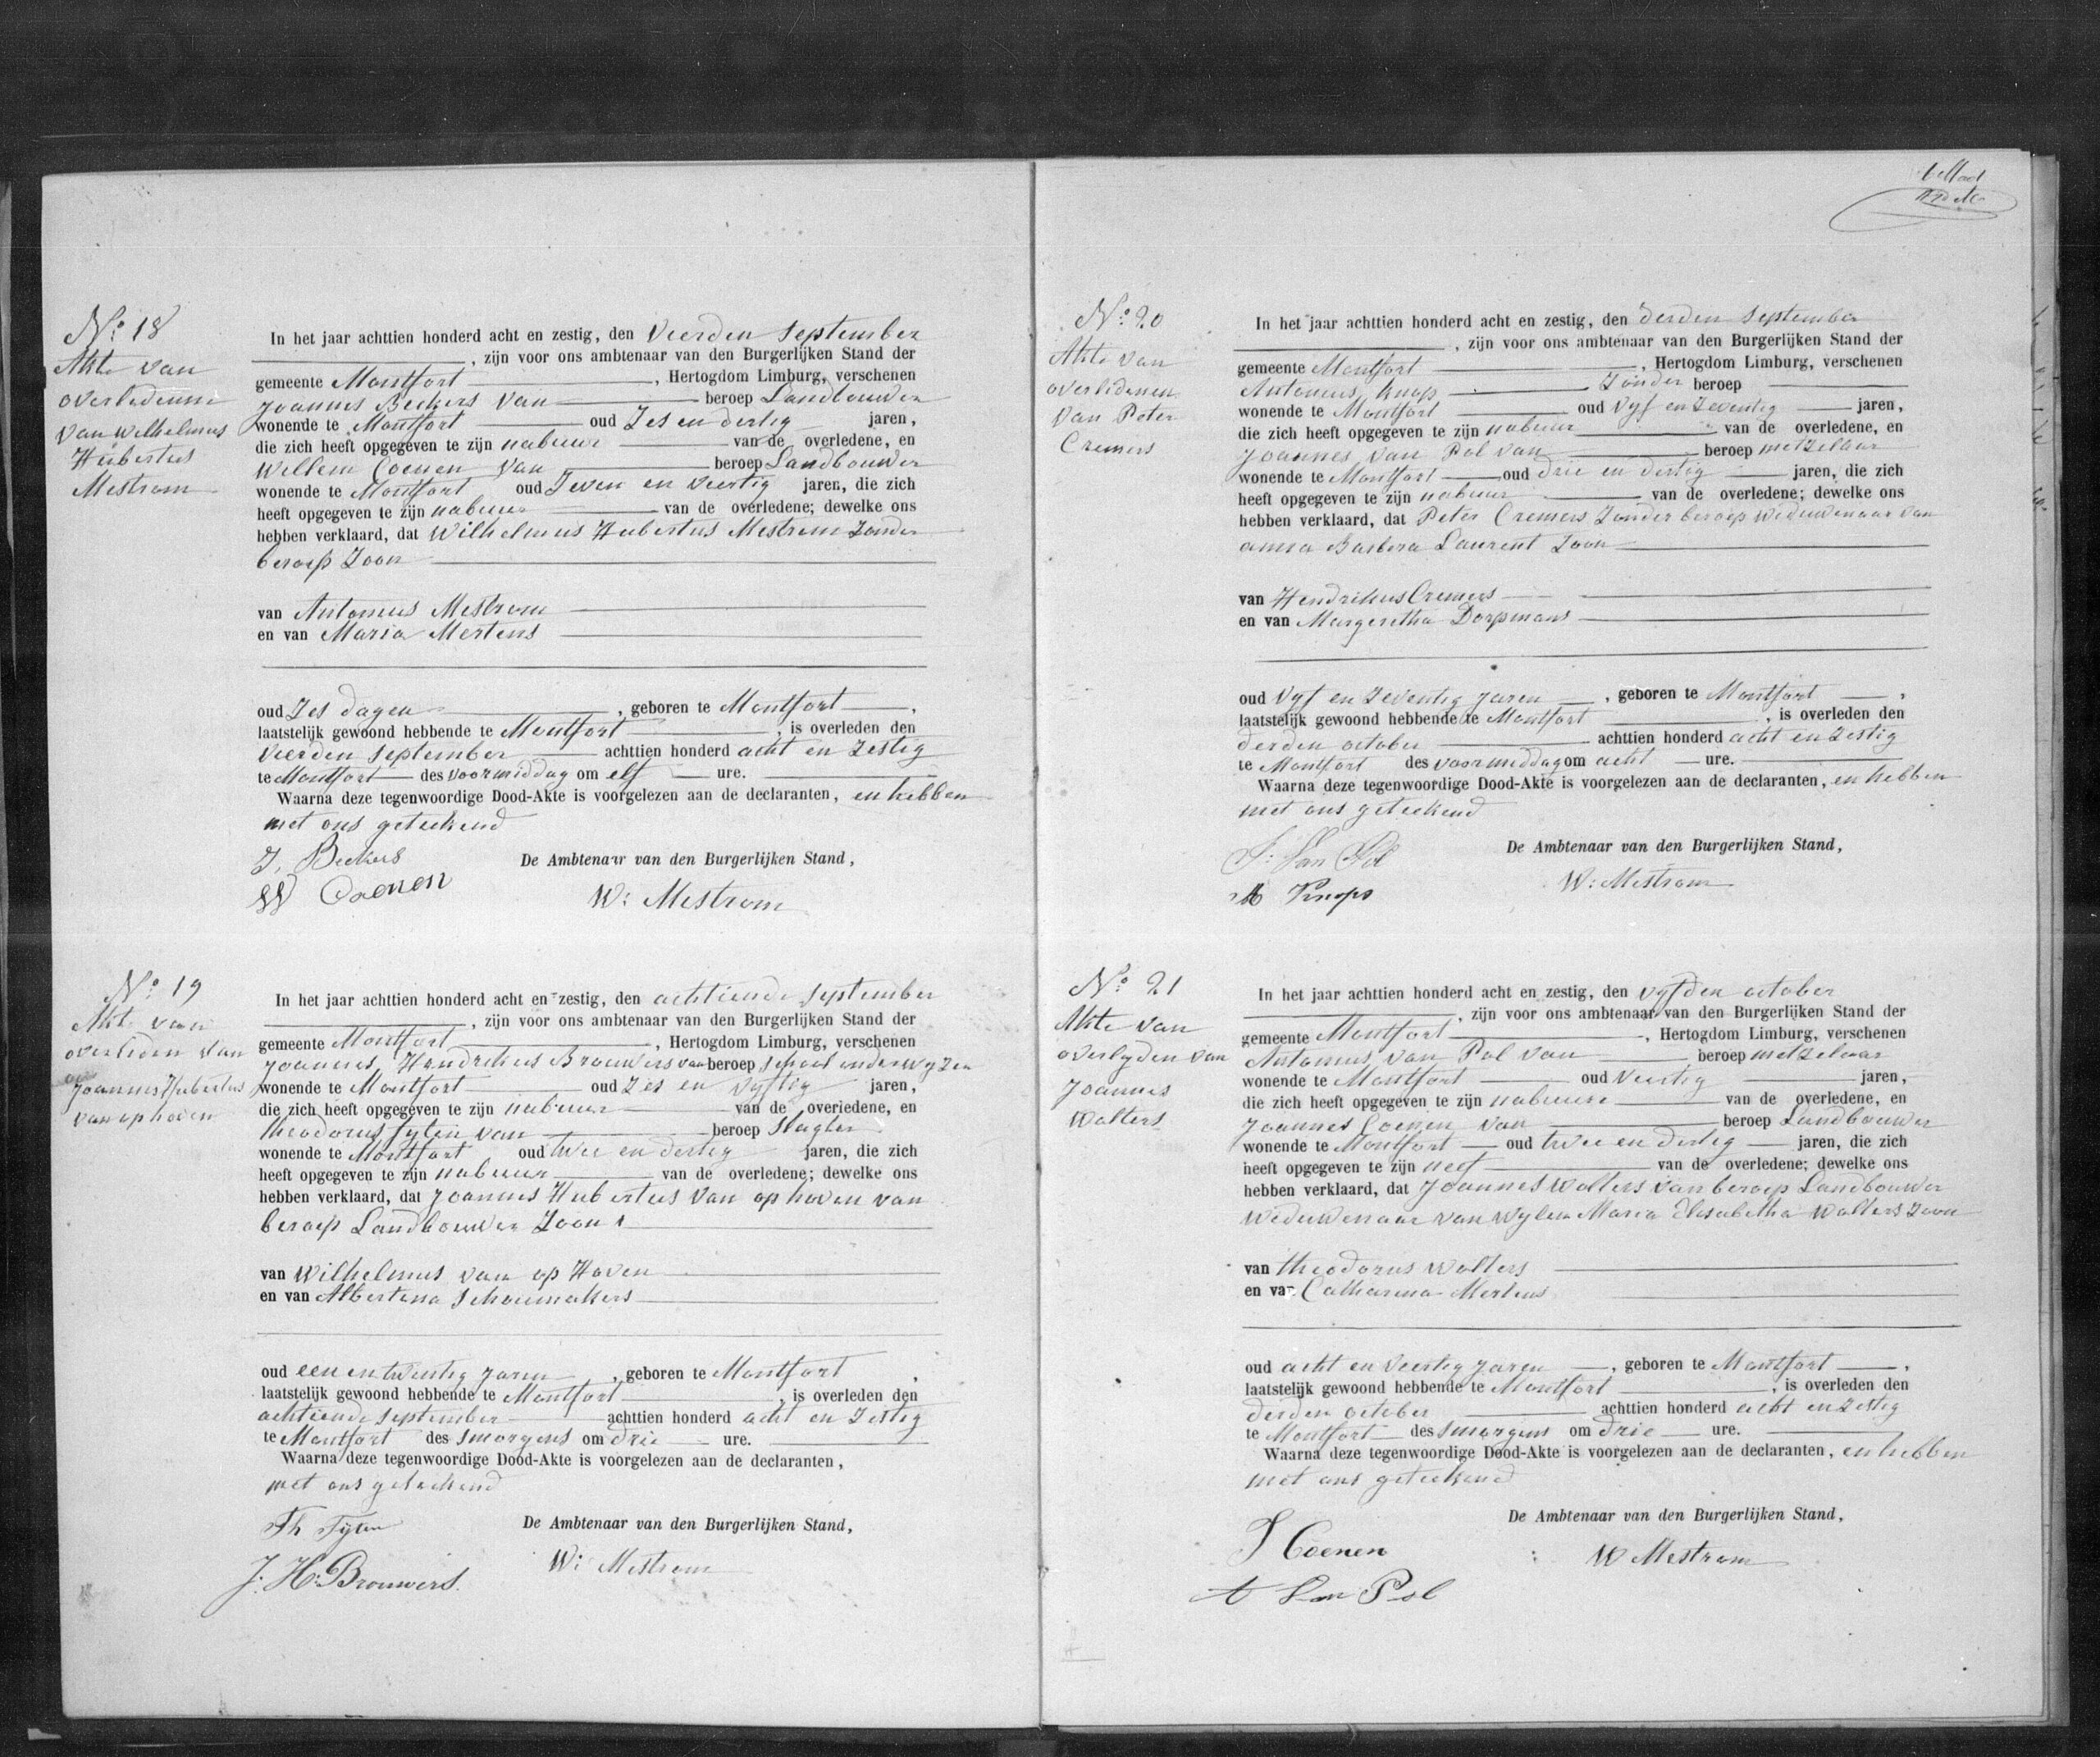 N° 18
Akte van
overledenne
van Wilhelmus
Hubertus
Mestrom
In het jaar achttien honderd acht en zestig, den Veerden September
, zijn voor ons ambtenaar van den Burgerlijken Stand der
gemeente Montfort , Hertogdom Limburg, verschenen
Joannes Beckers van beroep Landbouwer
wonende te Montfort oud Zes en dertig jaren,
die zich heeft opgegeven te zijn nabuur van de overledene, en
Willem Coenen van beroep Landbouwer
wonende te Montfort oud Zeven en veertig jaren, die zich
heeft opgegeven te zijn nabuur van de overledene; dewelke ons
hebben verklaard, dat Wilhelmus Hubertus Mestrom Zonder
beroep Zoon
van Antonius Mestrom
en van Maria Mertens
oud Zes dagen , geboren te Montfort ,
laatstelijk gewoond hebbende te Montfort , is overleden den
Veerden September achttien honderd acht en Zestig
te Montfort des voormiddag om elf ure.
Waarna deze tegenwoordige Dood-Akte is voorgelezen aan de declaranten, en hebben
met ons geteekend
J. Beckers
De Ambtenaar van den Burgerlijken Stand,
W Coenen
W: Mestrom
N° 19
Akte van
overleden van
Joannes Hubertus
van op hoven
In het jaar achttien honderd acht en zestig, den achtiende September
, zijn voor ons ambtenaar van den Burgerlijken Stand der
gemeente Montfort , Hertogdom Limburg, verschenen
Joannes Hendrikus Brouwers van beroep School onderwyzer
wonende te Montfort oud Zes en vyftig jaren,
die zich heeft opgegeven te zijn nabuur van de overledene, en
Theodorus Fyten van beroep Slagter
wonende te Montfort oud twee en dertig jaren, die zich
heeft opgegeven te zijn nabuur van de overledene; dewelke ons
hebben verklaard, dat Joannes Hubertus Van op hoven van
beroep Landbouwer Zoon
van Wilhelmus van op Hoven
en van Albertina Schoumakers
oud een en twentig jaren , geboren te Montfort ,
laatstelijk gewoond hebbende te Montfort , is overleden den
achtiende September achttien honderd acht en Zestig
te Montfort des Smorgens om drie ure.
Waarna deze tegenwoordige Dood-Akte is voorgelezen aan de declaranten,
met ons geteekend
Th Fyten
De Ambtenaar van den Burgerlijken Stand,
W: Mestrom
J. H. Brouwers.
N° 20
Akte van
overledenen
van Peter
Cremers
In het jaar achttien honderd acht en zestig, den derden September
, zijn voor ons ambtenaar van den Burgerlijken Stand der
gemeente Montfort , Hertogdom Limburg, verschenen
Antonius Knops Zonder beroep
wonende te Montfort oud Vyf en Zeventig jaren,
die zich heeft opgegeven te zijn nabuur van de overledene, en
Joannes Van Pol van beroep metzelaar
wonende te Montfort oud drie en dertig jaren, die zich
heeft opgegeven te zijn nabuur van de overledene; dewelke ons
hebben verklaard, dat Peter Cremers Zonder beroep Weduwenaar van
anna Barbera Laurent Zoon
van Hendrikus Cremers
en van Margeretha Dorpmans
oud Vyf en Zeventig jaren , geboren te Montfort ,
laatstelijk gewoond hebbende te Montfort , is overleden den
derden october achttien honderd acht en Zestig
te Montfort des voormiddag om acht ure.
Waarna deze tegenwoordige Dood-Akte is voorgelezen aan de declaranten, en hebben
met ons geteekend
J: Van Pol
De Ambtenaar van den Burgerlijken Stand,
W: Mestrom
Knops
N° 21
Akte van
overlyden van
Joannes
Wolters
In het jaar achttien honderd acht en zestig, den vyfden october
, zijn voor ons ambtenaar van den Burgerlijken Stand der
gemeente Montfort , Hertogdom Limburg, verschenen
Antonius van Pol van beroep metzelaar
wonende te Montfort oud Veertig jaren,
die zich heeft opgegeven te zijn nabuure van de overledene, en
Joannes Coenen van beroep Landbouwer
wonende te Montfort oud twee en dertig jaren, die zich
heeft opgegeven te zijn neef van de overledene; dewelke ons
hebben verklaard, dat Joannes Wolters van beroep Landbouwer
Weduwenaar van Wylen Maria Elisabetha Wolters Zoon
van Theodorus Wolters
en van Catharina Mertens
oud acht en Veertig jaren , geboren te Montfort ,
laatstelijk gewoond hebbende te Montfort , is overleden den
derden october achttien honderd acht en Zestig
te Montfort des Smorgens om drie ure.
Waarna deze tegenwoordige Dood-Akte is voorgelezen aan de declaranten, en hebben
met ons geteekend
De Ambtenaar van den Burgerlijken Stand,
J Coenen
W Mestrom
A Van Pol